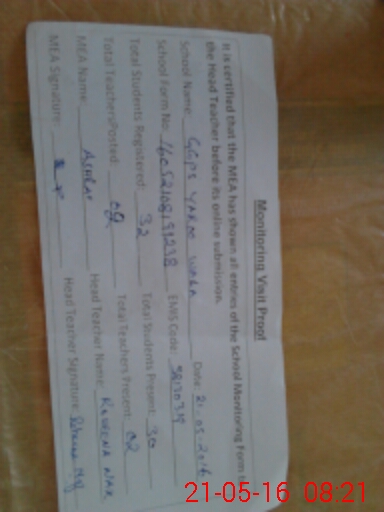 Monitoring Visit Proof
It is certified that the MEA has shown all entries of the School Monitoring Form to
the Head Teacher before its online submission.
Date: 21-05-2016
School Name: GGPS YAROO WALA
School Form No: EMIS Code:
Total Students Registered: 32 Total Students Present: 30
Total Teachers Posted: 02 Total Teachers Present: 02
MEA Name: ASHRAF Head Teacher Name: RUBEENA NAZ
MEA Signature: Head Teacher Signature:
21-05-16 08:21